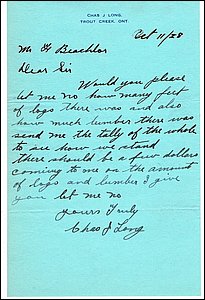 CHAS J LONG,
TROUT CREEK, ONT.
Oct 11/28
Mr G Beachlor
Dear Sir
Would you please
let me no how many feet
of logs there was and also
how much lumber there was
send me the tally of the whole
to see how we stand
there should be a few dollars
coming to me on the amount
of logs and lumber I give
you let me no
yours Truly
Chas J Long